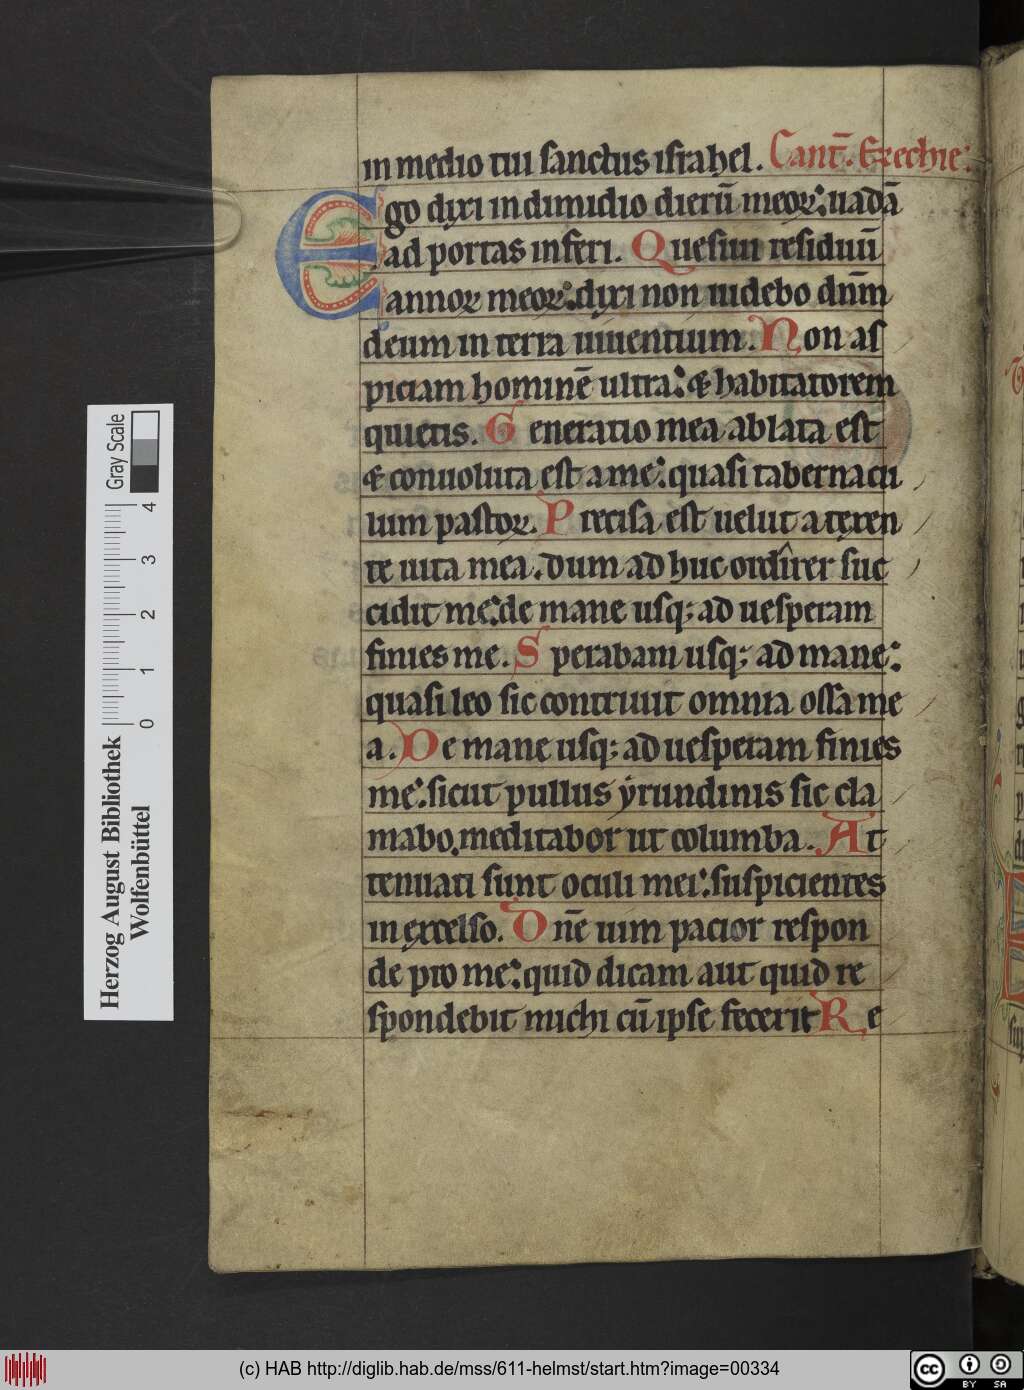 in medio tui sanctus israhel. Cant̄. Ezechie:
Ego dixi in dimidio dierū meoꝝ: uadā
ad portas inferi. Quesiui residuū
annoꝝ meoꝝ: dixi non uidebo dn̄m
deum in terra uiuentium. Non as
piciam hominē ultra: & habitatorem
quietis. Generatio mea ablata est
& conuoluta est a me: quasi tabernacu
lum pastoꝝ. Precisa est uelut a texen
te uita mea. dum ad huc ordirer suc
cidit me: de mane usq; ad uesperam
finies me. Sperabam usq; ad mane:
quasi leo sic contriuit omnia ossa me
a. De mane usq; ad uesperam finies
me: sicut pullus yrundinis sic cla
mabo. meditabor ut columba. At
tenuati sunt oculi mei: suspicientes
in excelso. Dn̄e uim pacior respon
de pro me: quid dicam aut quid re
spondebit michi cū ipse fecerit Re
Gray Scale
0 1 2 3 4
Herzog August Bibliothek
Wolfenbüttel
(c) HAB http://diglib.hab.de/mss/611-helmst/start.htm?image=00334
cc BY SA